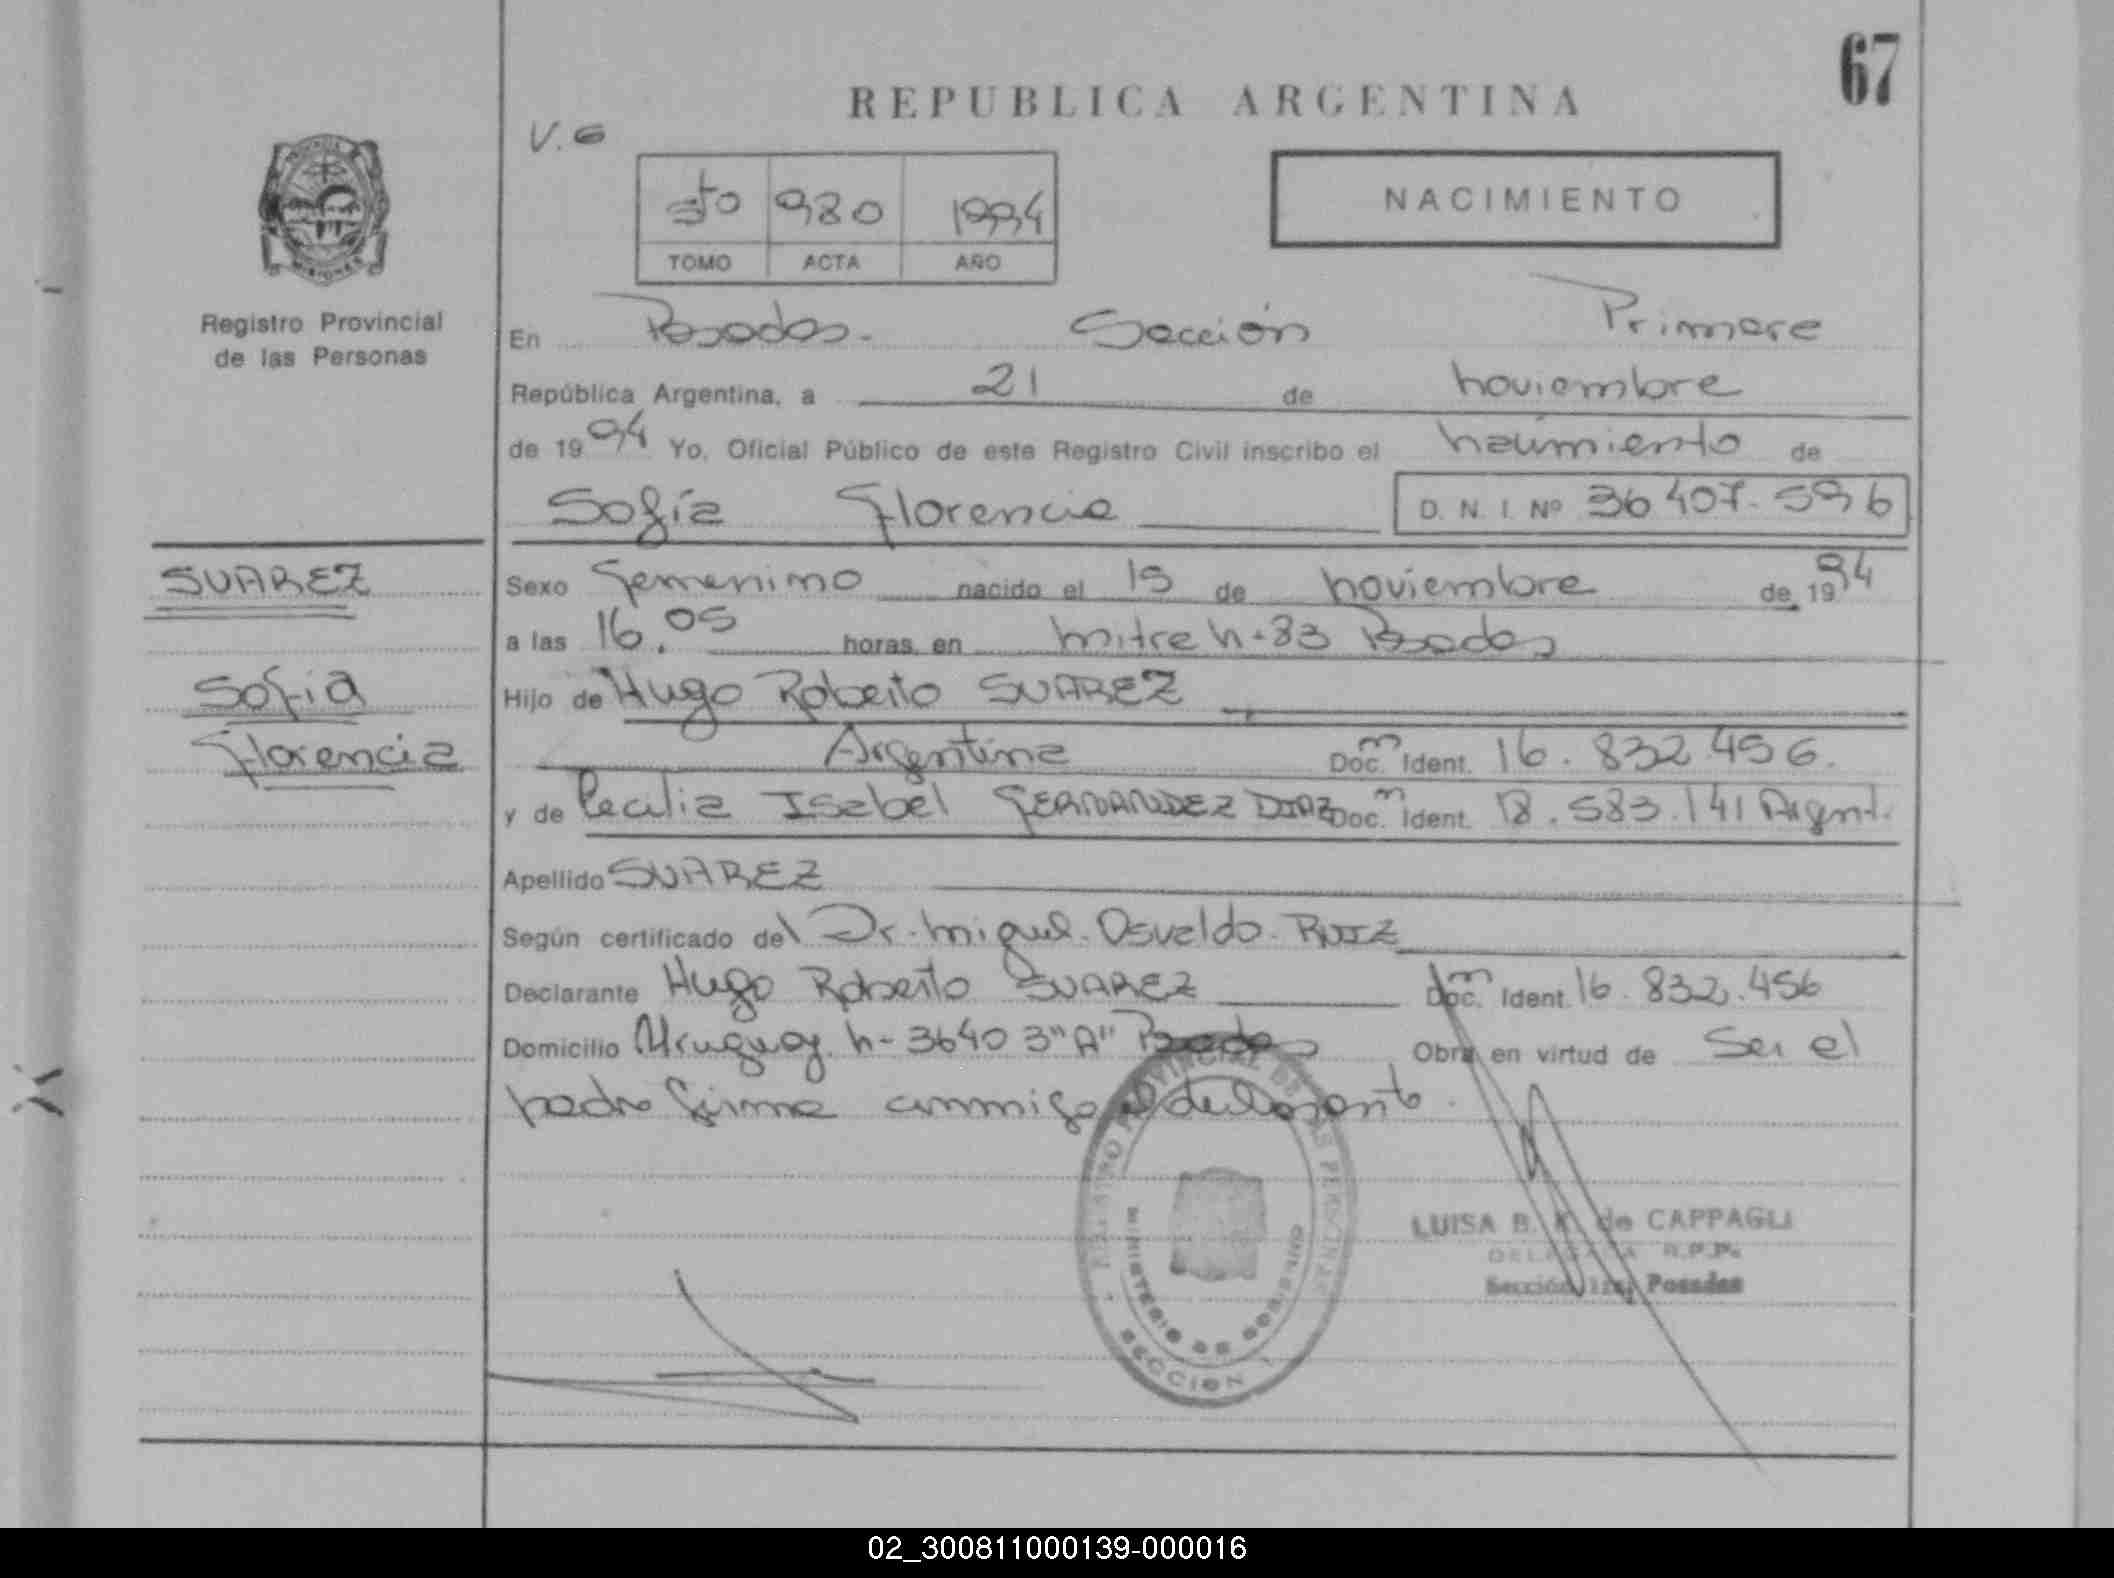 67
REPUBLICA ARGENTINA
V. G
5to 980 1994
TOMO ACTA AÑO
NACIMIENTO
PROVINCIA
MISIONES
Registro Provincial
de las Personas
En Posadas.- Sección Primera
República Argentina, a 21 de noviembre
de 1994 Yo, Oficial Público de este Registro Civil inscribo el nacimiento de
Sofía Florencia D. N. I. Nº 36 407.596
SUAREZ
Sofia
Florencia
Sexo femenino nacido el 15 de noviembre de 1994
a las 16.05 horas en mitre n-83 Posadas
Hijo de Hugo Roberto SUAREZ
Argentina Doc. m Ident. 16.832.456.
y de Cecilia Isabel FERNANDEZ DIAZ Doc. m Ident. 18.583.141 Argent.
Apellido SUAREZ
Según certificado del Dr. miguel. Osvaldo. RUIZ
Declarante Hugo Roberto SUAREZ Doc. m Ident. 16.832.456
Domicilio Uruguay n- 3640 3"A" Posadas Obra en virtud de Ser el
padre firma conmigo el declarante.
REGISTRO PROVINCIAL DE LAS PERSONAS
MINISTERIO DE GOBIERNO
SECCION
LUISA B. de CAPPAGLI
DELEGADA R.P.P.
Sección 1ra. Posadas
02_300811000139-000016